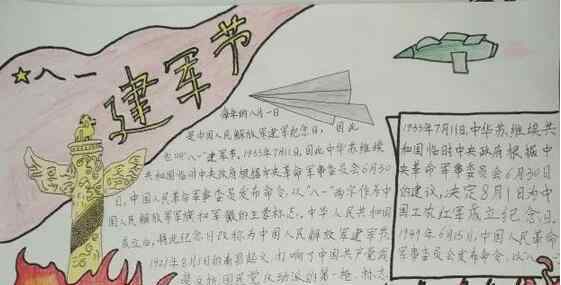 八一
建军节
每年的八月一日
是中国人民解放军建军纪念日，因此
也叫"八一"建军节。1933年7月11日，因此中华苏维埃
共和国临时中央政府根据中央革命军事委员会6月30
日，中国人民革命军事委员发布命令，以"八一"两字作为中
国人民解放军军旗和军徽的主要标志。中华人民共和国
成立后，将此纪念日改称为中国人民解放军建军节。
1927年8月1日的南昌起义，打响了中国共产党武
国民党反动派的第一枪，标志
1933年7月11日，中华苏维埃共
和国临时中央政府根据中
央革命军事委员会6月30日
的建议，决定8月1日为中
国工农红军成立纪念日。
1949年6月15日，中国人民革命
军事委员会发布命令，以"八一